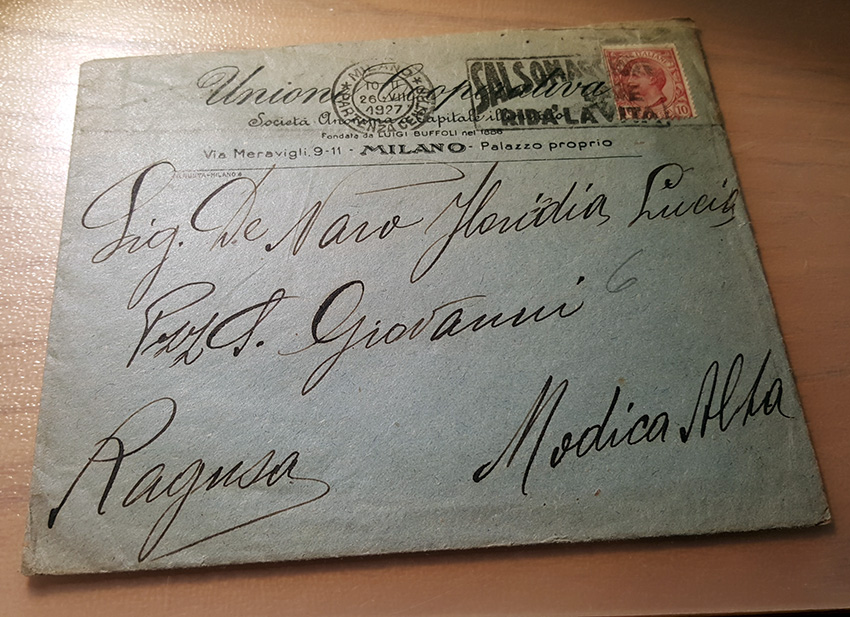 MILANO
10 II
26·VIII
1927
PARTENZA CENTRO
SALSOMAGGIORE
RIDÀ LA VITA
POSTE ITALIANE
10
Unione Cooperativa
Società Anonima a Capitale illimitato
Fondata da LUIGI BUFFOLI nel 1886
Via Meravigli, 9-11 - MILANO - Palazzo proprio
Sig. De Naro Floridia Lucia
6
Pzz S. Giovanni
Modica Alta
Ragusa